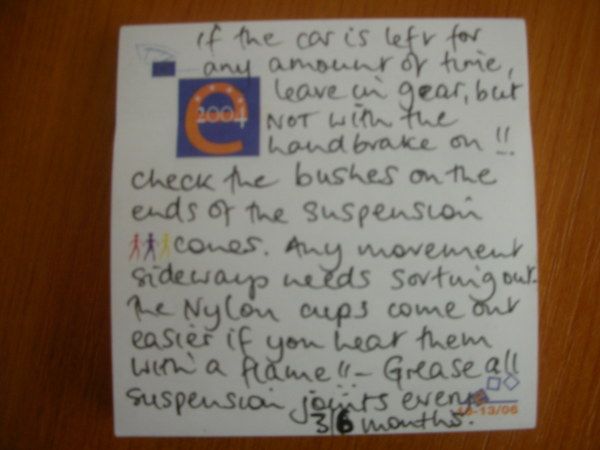 If the car is left for
any amount of time,
leave in gear, but
NOT with the
handbrake on !!
e
2004
check the bushes on the
ends of the suspension
cones. Any movement
sideways needs sorting out.
The Nylon cups come out
easier if you heat them
with a flame !! - Grease all
suspension joints every
3/6 months.
-13/06